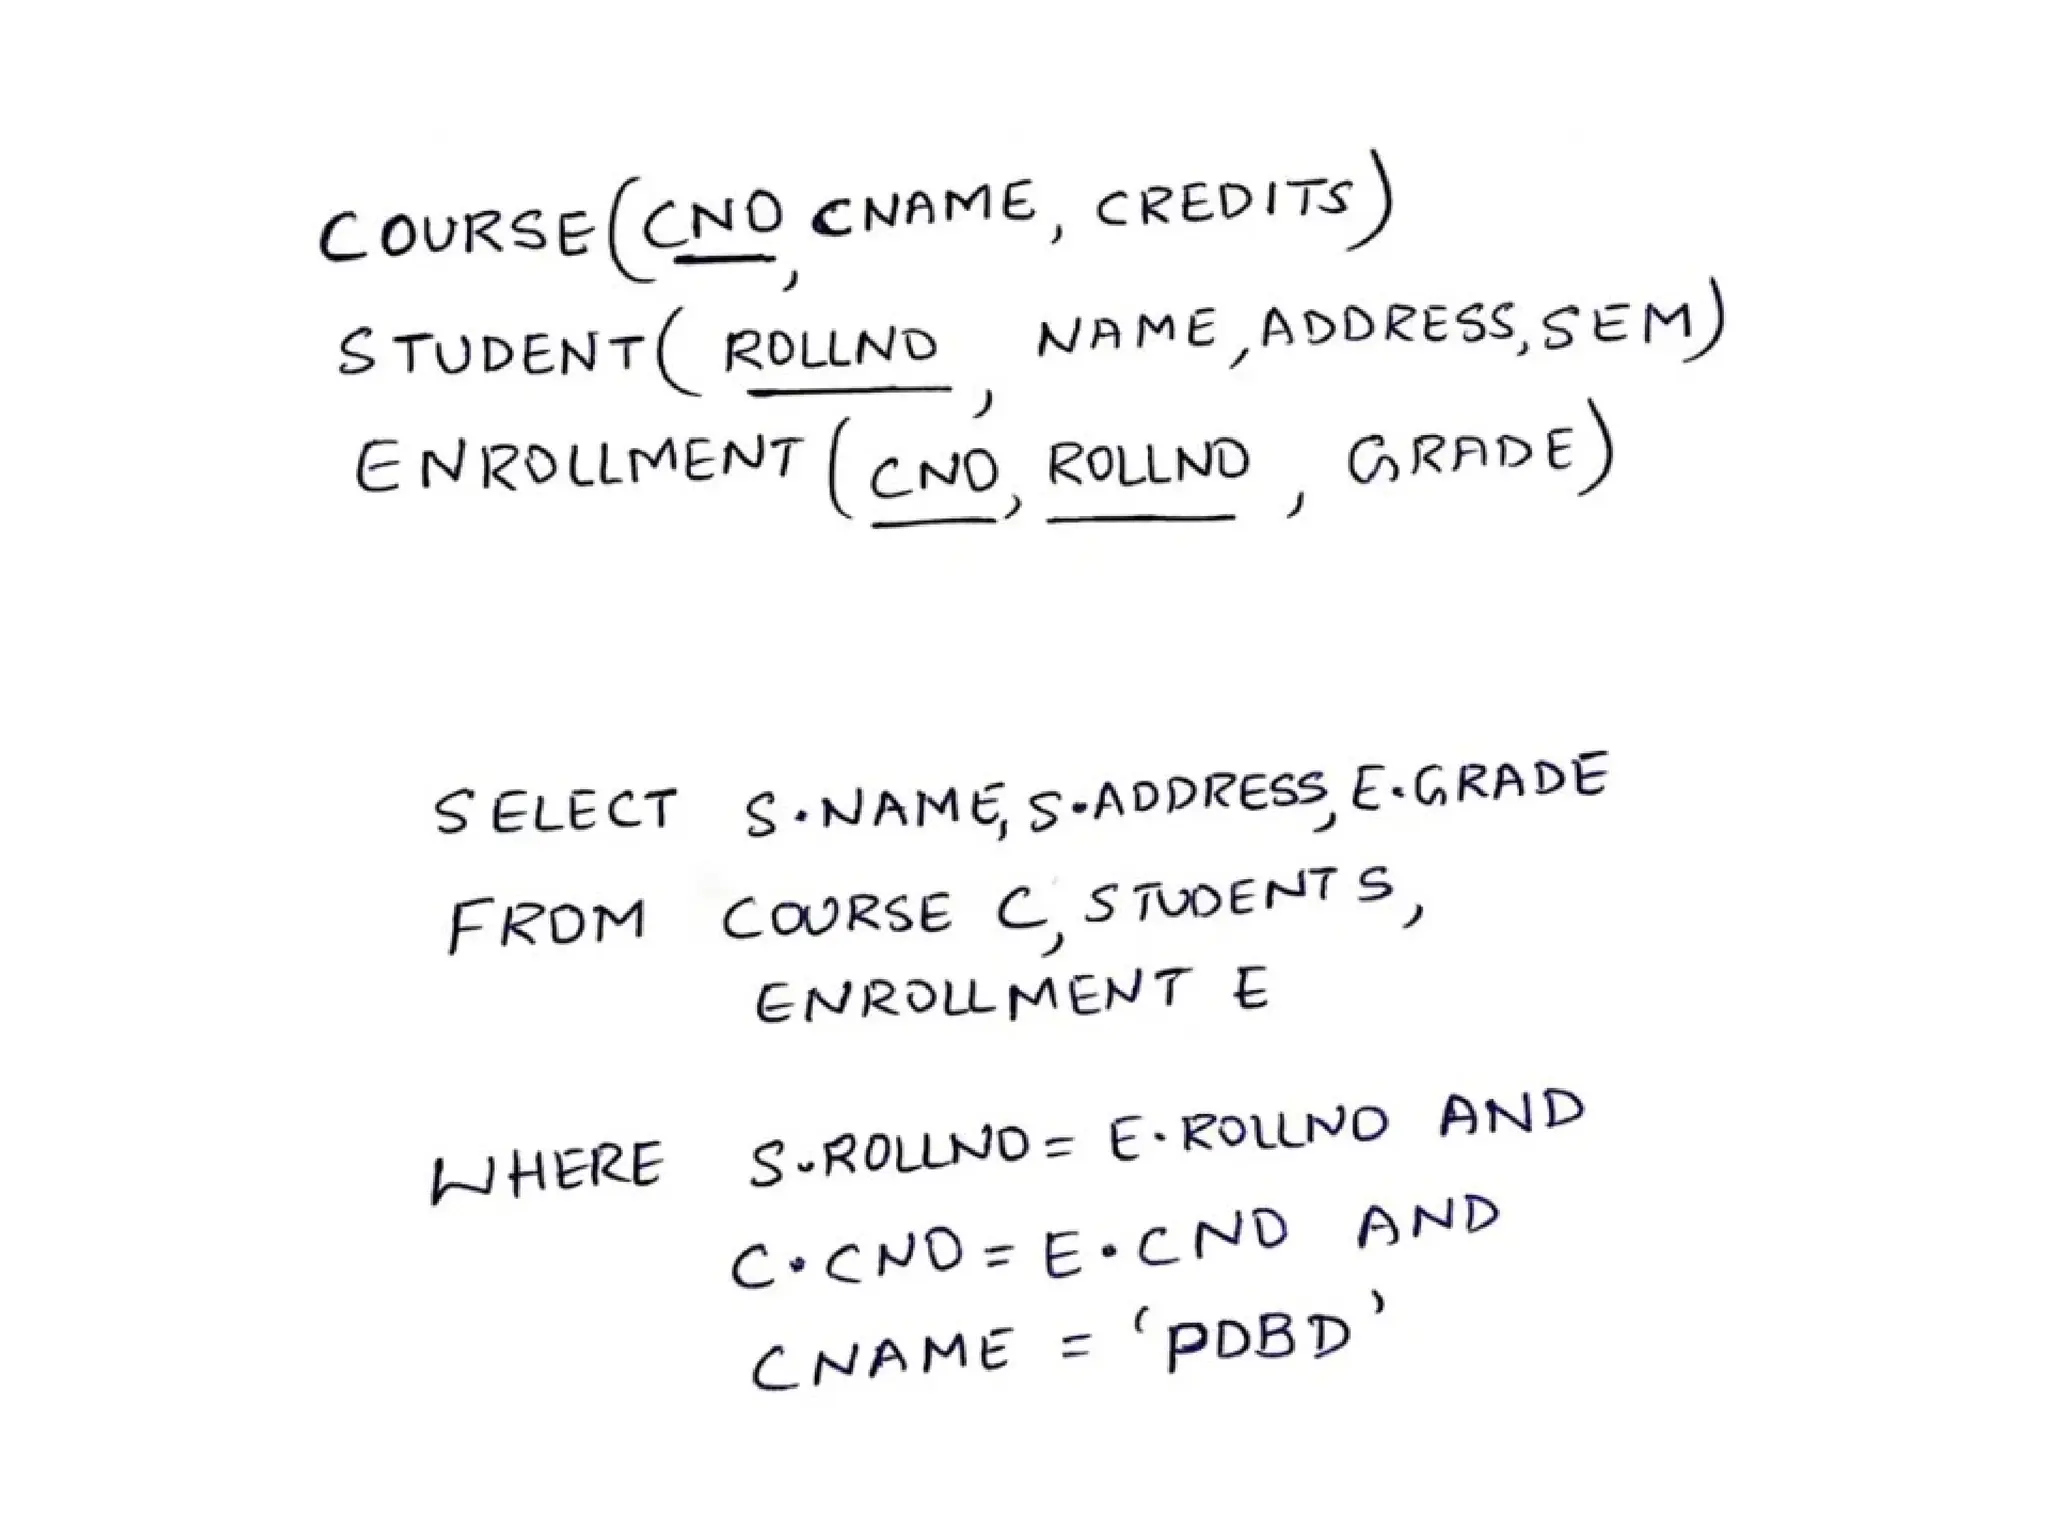 COURSE(CNO, CNAME, CREDITS)
STUDENT(ROLLNO, NAME, ADDRESS, SEM)
ENROLLMENT(CNO, ROLLNO, GRADE)
SELECT S.NAME, S.ADDRESS, E.GRADE
FROM COURSE C, STUDENT S,
ENROLLMENT E
WHERE S.ROLLNO = E.ROLLNO AND
C.CNO = E.CNO AND
CNAME = 'PDBD'